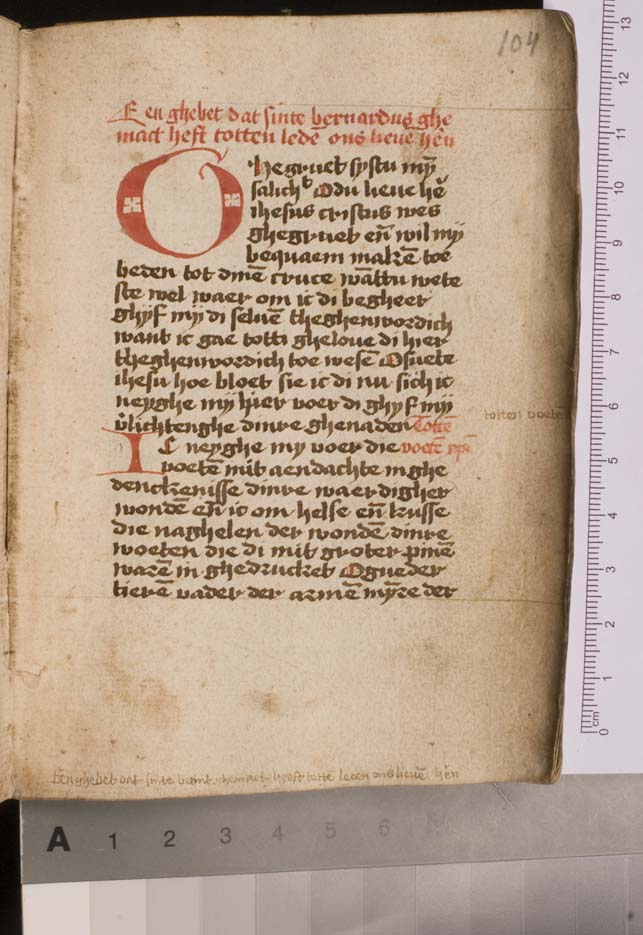 104
Een ghebet dat sinte bernardus ghe
mact heft totten ledē ons lieuē hēn
Ghegruet systu mȳ
salichᵗ Odu lieue hē
ihesus cristus wes
ghegruet eñ wil mij
bequaem makē toe
beden tot dinē cruce wāttu wete
ste wel waer om ic di begheer
ghijf mij di seluē theghenwordich
want ic gae totti gheloue di hier
theghenwordich toe wesē Osuete
ihesu hoe bloet sie ic di nu sich ic
neyghe mij hier voer di ghyf mij
v̉lichtenghe dinre ghenaden Tottē
totten voetē
Ic neyghe my voer die voetē xpī
voetē mit aendachte in ghe
denckenisse dinre waerdigher
wondē eñ ic om helse eñ kusse
die naghelen der wondē dinre
voeten die di mit groter pinē
warē in ghedrucket Ogueder
tierē vader der armē mȳre der
Een ghebet dat sinte bernt ghemact heeft tottē leden ons lieuē hēn
A 1 2 3 4 5 6
13
12
11
10
9
8
7
6
5
4
3
2
1
cm
0